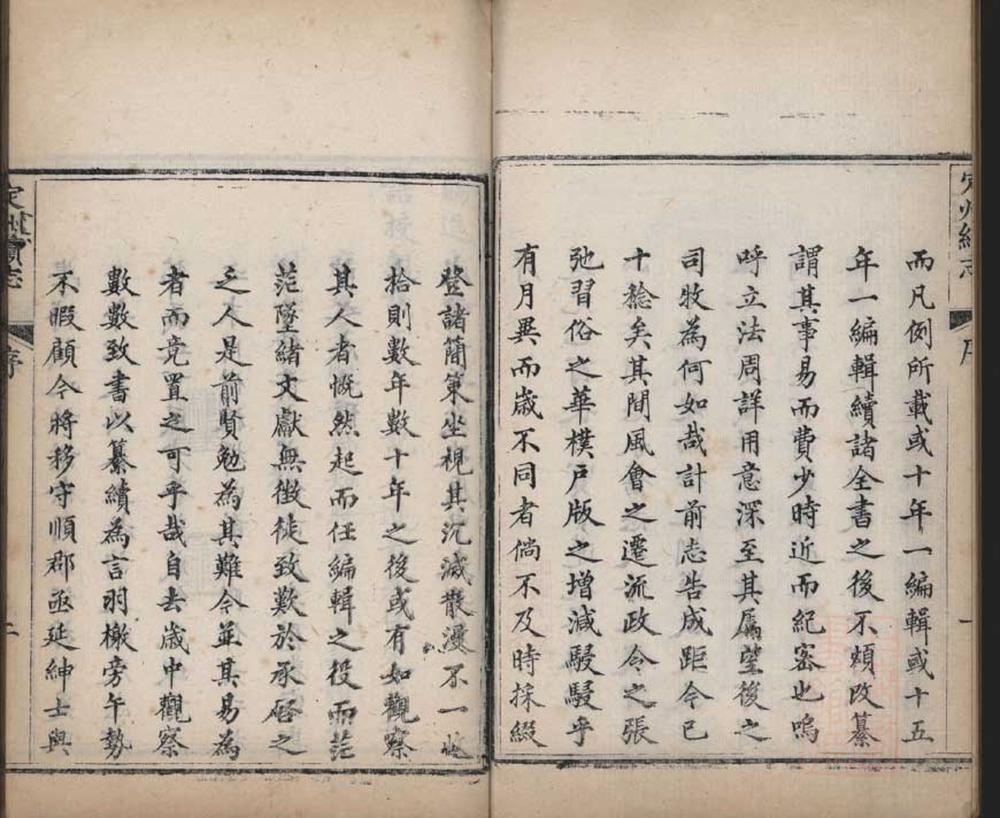 定州續志 序 一
而凡例所載或十年一編輯或十五
年一編輯續諸全書之後不煩改纂
謂其事易而費少時近而紀宻也嗚
呼立法周詳用意深至其屬望後之
司牧為何如哉計前志告成距今已
十稔矣其間風會之遷流政令之張
弛習俗之華樸戶版之增減駸駸乎
有月異而歲不同者倘不及時採綴
登諸簡策坐視其沉滅散漫不一收
拾則數年數十年之後或有如觀察
其人者慨然起而任編輯之役而茫
茫墜緒文獻無徴徒致歎於承啓之
乏人是前賢勉為其難今並其易為
者而竞置之可乎哉自去歲中觀察
數數致書以纂續為言羽檄旁午勢
不暇顧今將移守順郡亟延紳士與
定州續志 序 二